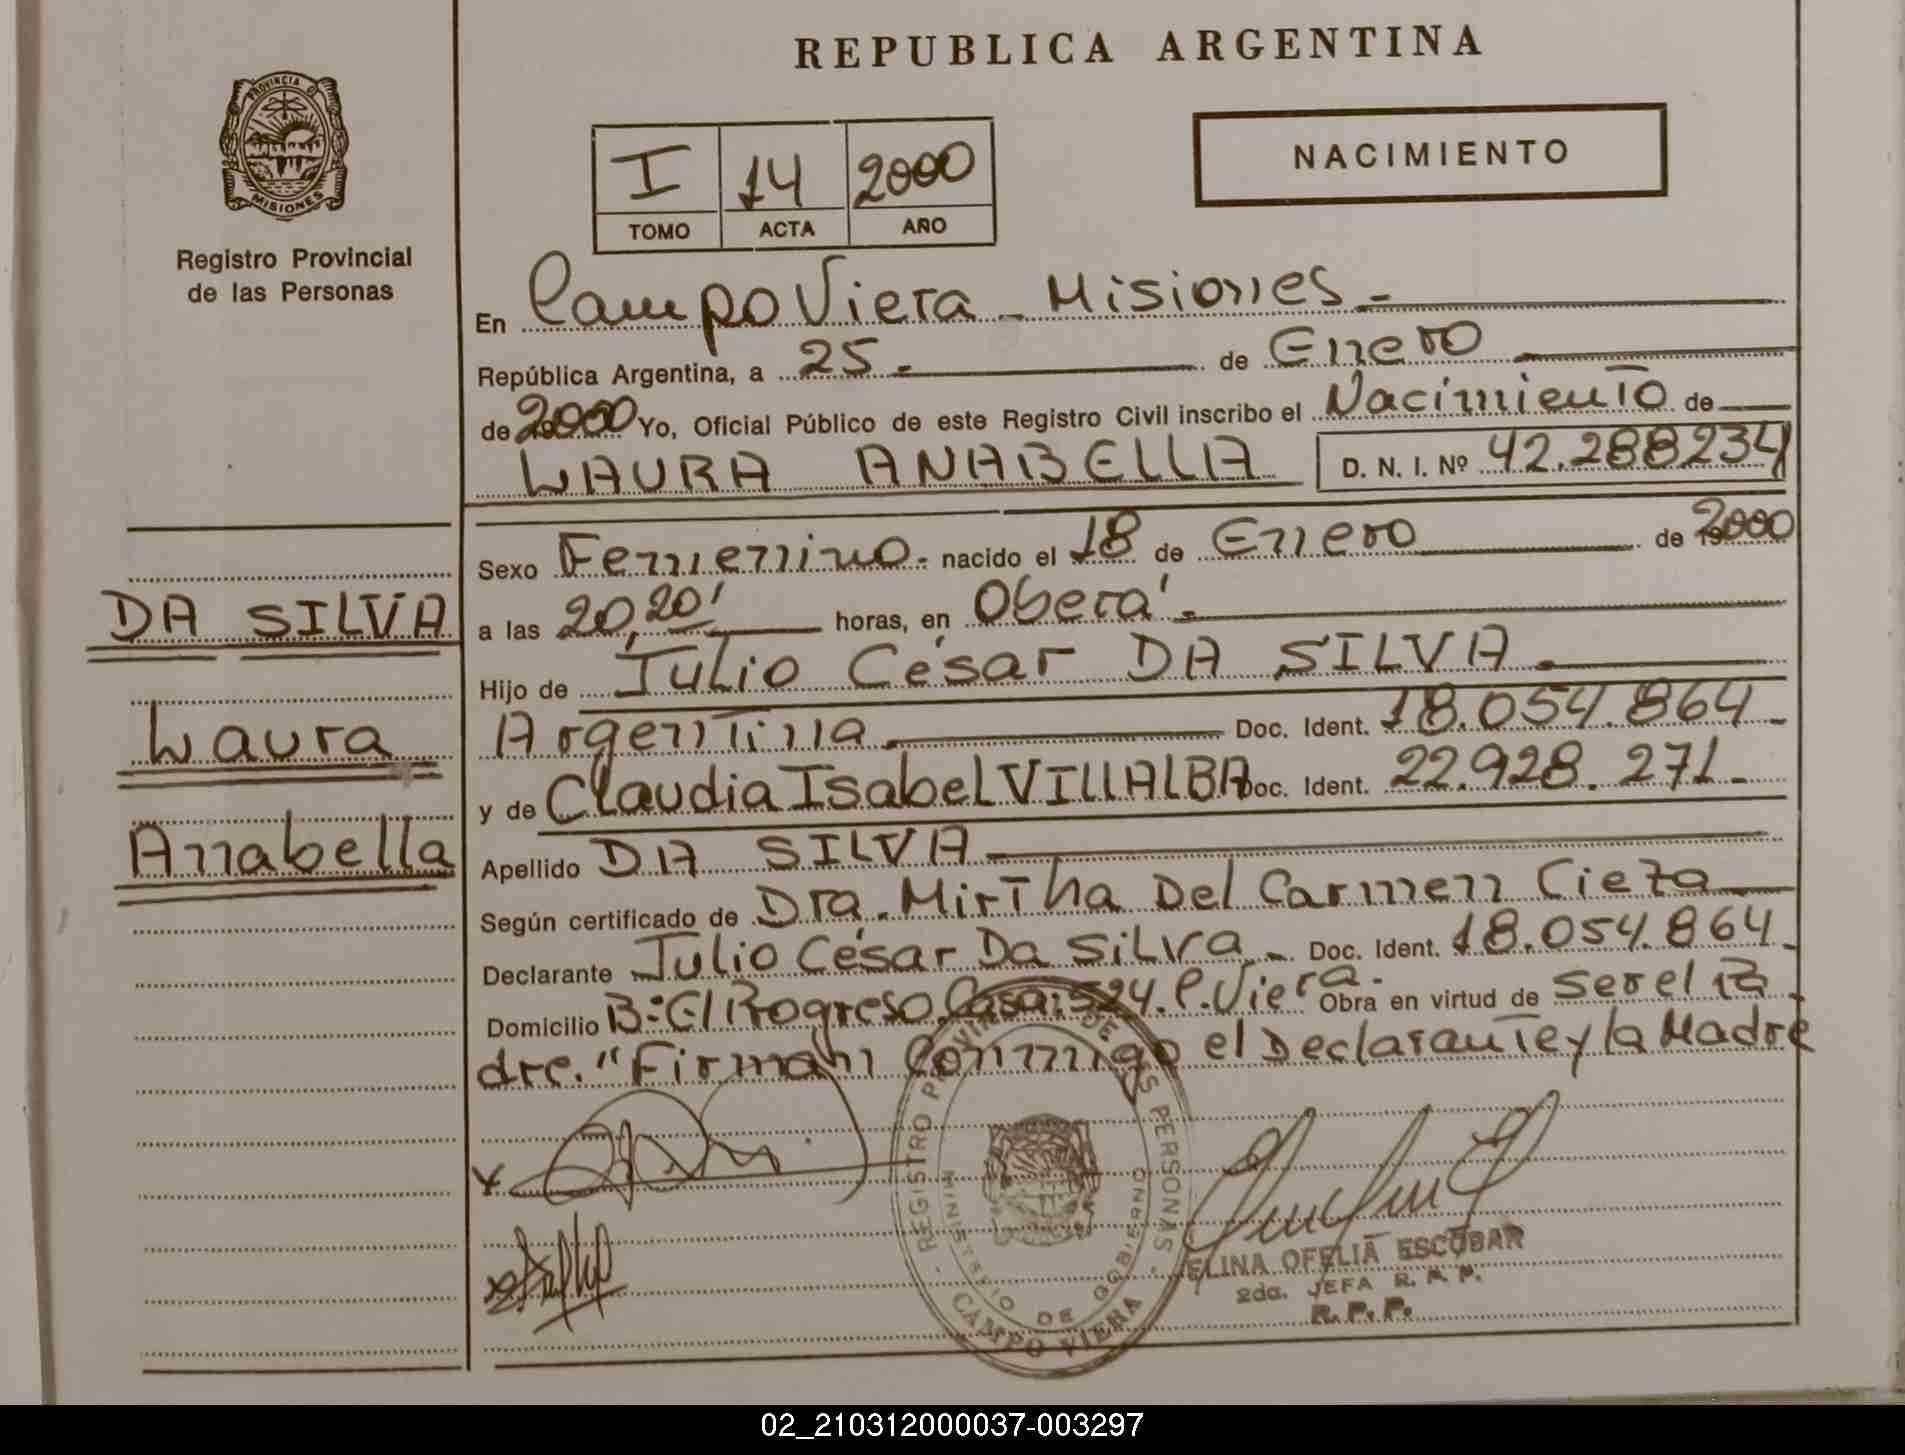 REPUBLICA ARGENTINA
PROVINCIA D
MISIONES
Registro Provincial
de las Personas
I 14 2000
TOMO ACTA AÑO
NACIMIENTO
En Campo Viera - Misiones -
República Argentina, a 25 - de Enero
de 2000 Yo, Oficial Público de este Registro Civil inscribo el Nacimiento de
LAURA ANABELLA D. N. I. Nº 42.288234
Sexo Femenino - nacido el 18 de Enero de 2000
a las 20,20' horas, en Oberá -
Hijo de Julio César DA SILVA -
Argentina - Doc. Ident. 18.054.864 -
y de Claudia Isabel VILLALBA Doc. Ident. 22.928.271 -
Apellido DA SILVA
Según certificado de Dra. Mirtha Del Carmen Cieza
Declarante Julio César Da Silva - Doc. Ident. 18.054.864 -
Domicilio B: El Progreso Casa: 524. C. Viera - Obra en virtud de ser el Pa
dre. "Firman Conmigo el Declarante y la Madre
DA SILVA
Laura
Anabella
REGISTRO PROVINCIAL DE LAS PERSONAS
MINISTERIO DE GOBIERNO
CAMPO VIERA
ELINA OFELIA ESCOBAR
2da. JEFA R. P. P.
R. P. P.
02_210312000037-003297